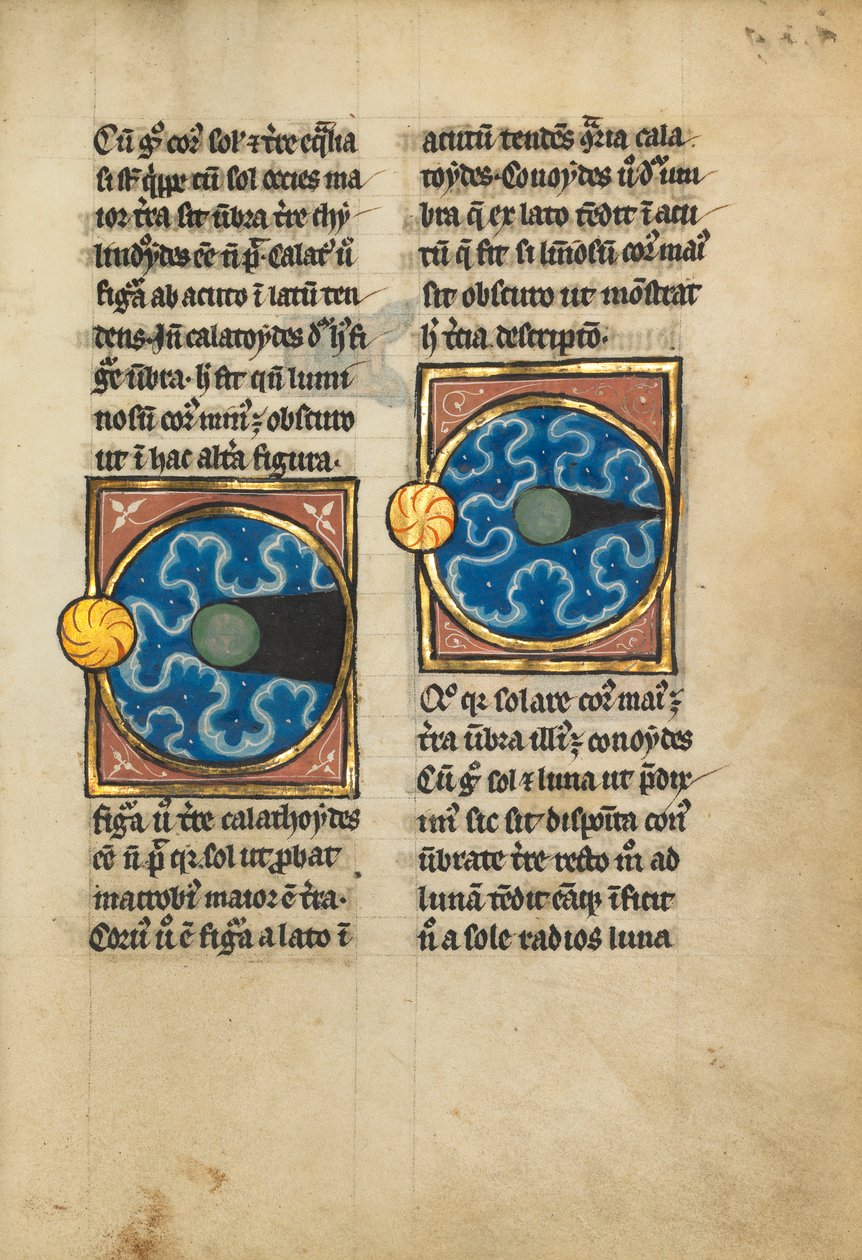 Cū gͦ corꝰ sol' ⁊ t̄re eq̄lia
si st̄ q̄ppe cū sol occies ma
ior t̄ra sit ūbra t̄re chẏ
lindroẏdes eē ñ p̄t. Calat' u̾
figͣa ab acuto ī latū ten
dens. Jn̄ calatoẏdes d̄r h' fi
gͣe ūbra. h̄ fit qn̄ lumi
nosū corꝰ minꝰ ē obscuro
ut ī hac alt̄a figura.
figͣa uͦ t̄re calathoẏdes
eē ñ p̄t qꝛ sol ut ꝓbat
macrobiꝰ maior ē t̄ra.
Conū uͦ ē figͣa a lato ī
acutū tendēs ꝯͣria cala
toẏdes. Conoẏdes uͦ d̄r um
bra q̄ ex lato tēdit ī acu
tū q̄ fit si lum̄osū corꝰ maiꝰ
sit obscuro ut mōstrat
h̄ t̄cia descriptō.
Qͦ qꝛ solare corꝰ maiꝰ ē
t̄ra ūbra illiꝰ ē conoẏdes
Cū gͦ sol ⁊ luna ut p̄dix
imꝰ sic sit disposita conꝰ
ūbrate t̄re recto m̊ ad
lunā tēdit eāqꝫ īficit
n̊ a sole radios luna